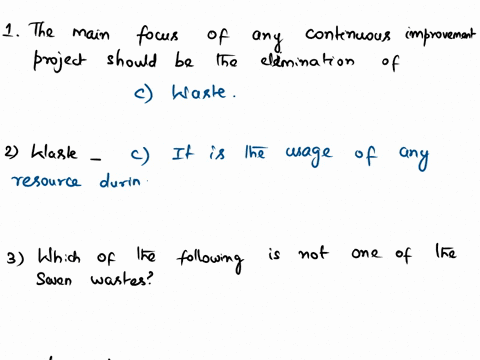 1. The main focus of any continuous improvement
project should be the elimination of
c) Waste.
2) Waste - c) It is the usage of any
resource durin
3) Which of the following is not one of the
Seven wastes?